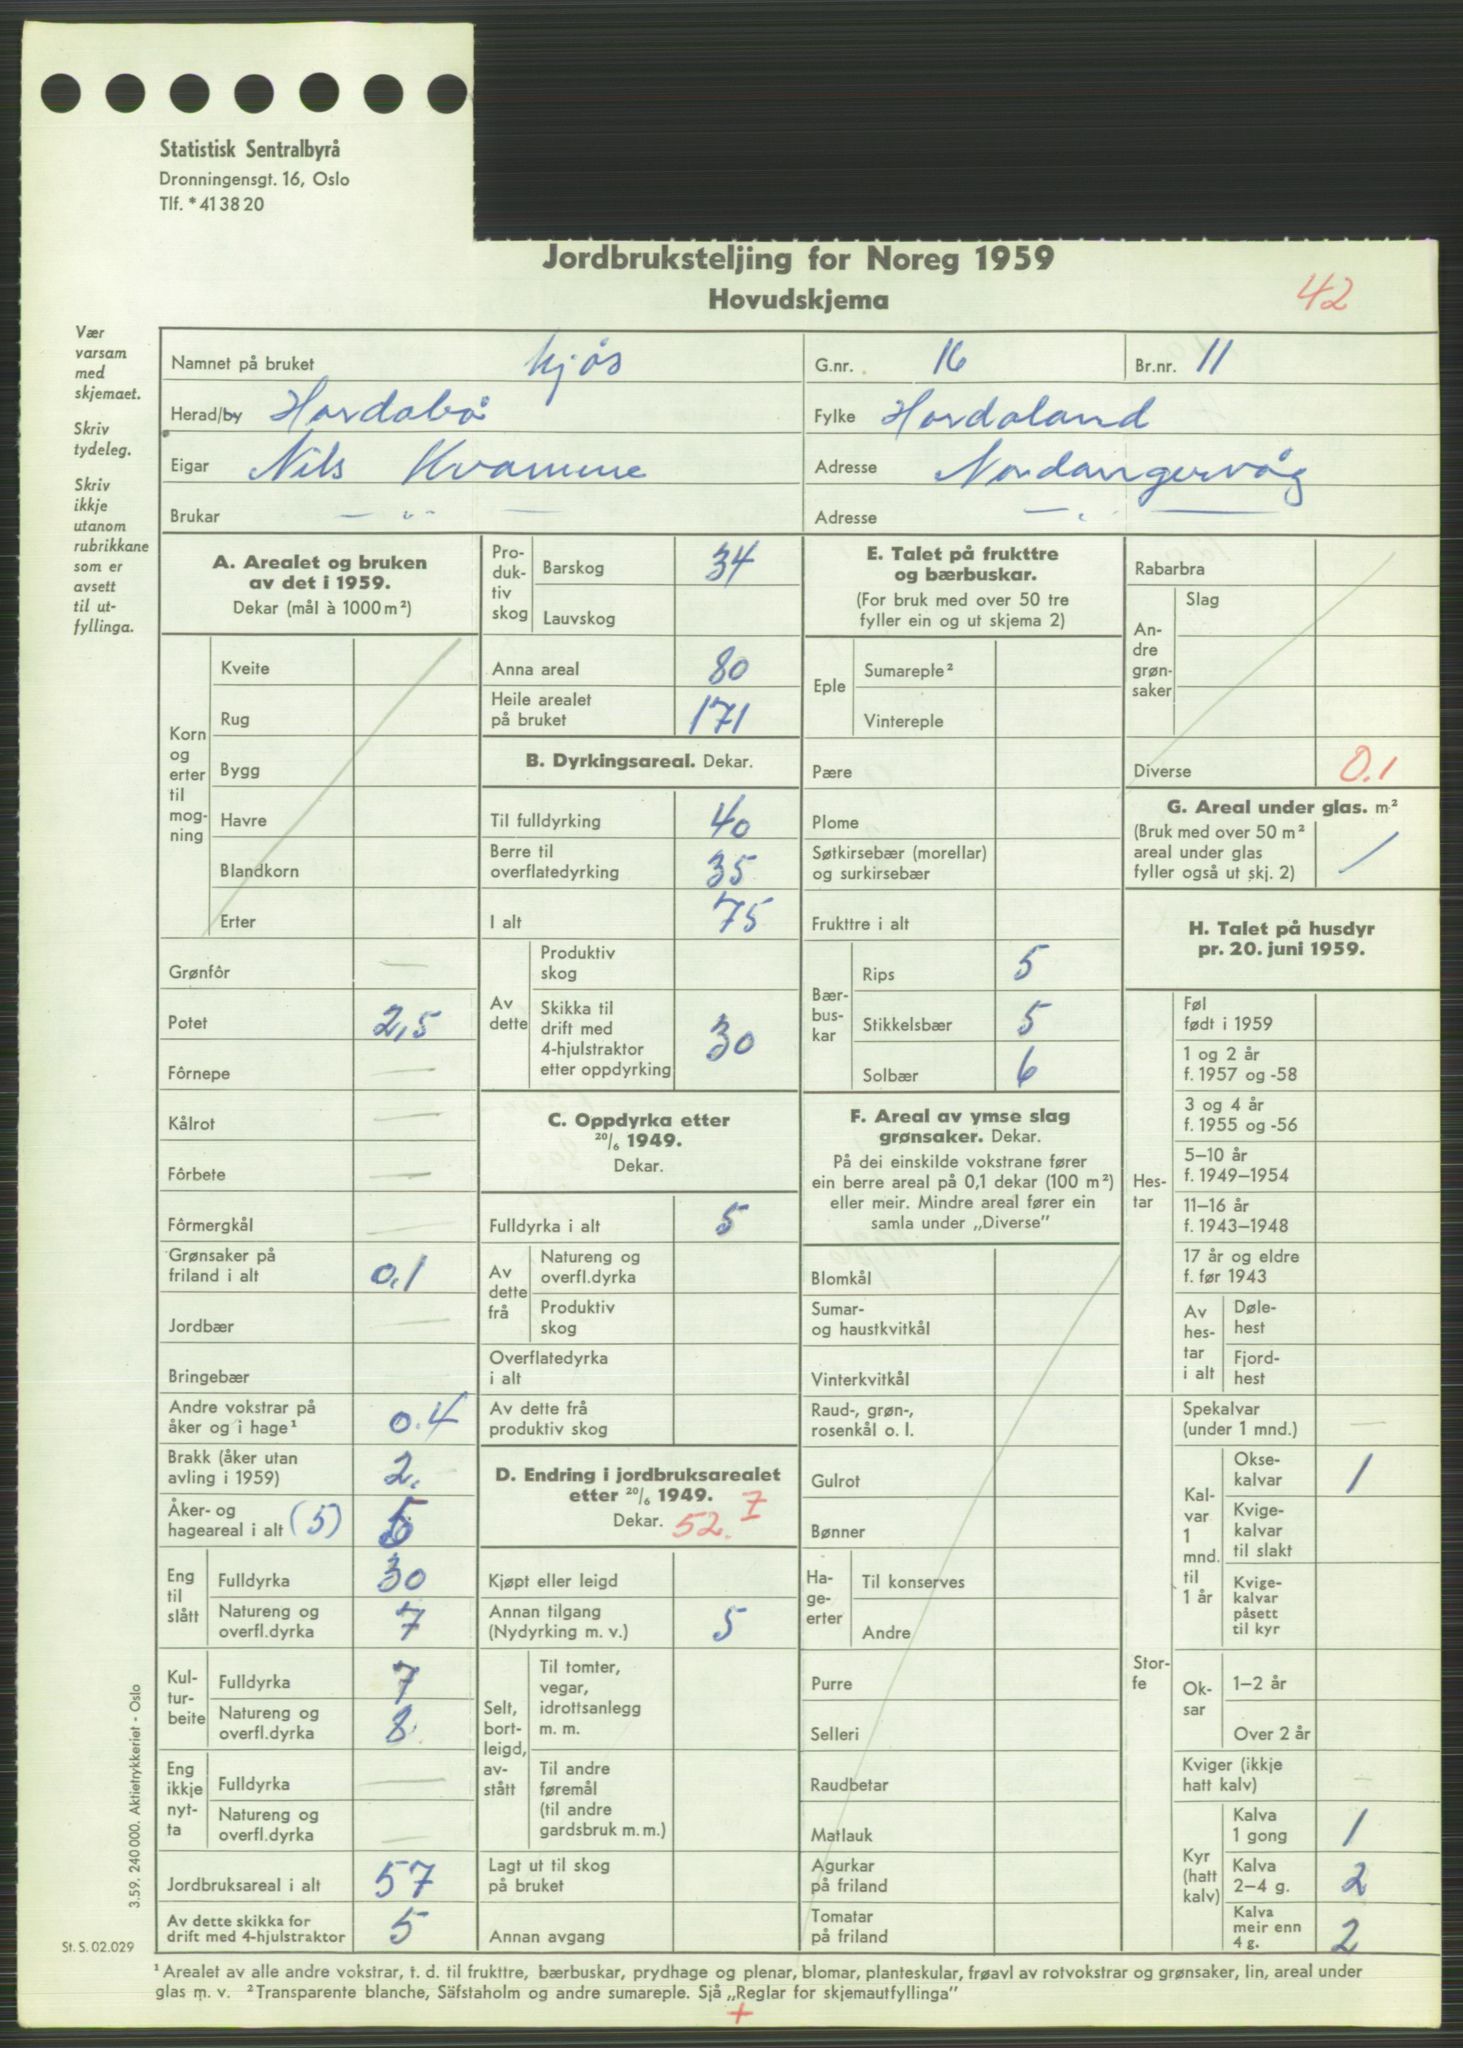 Statistisk Sentralbyrå
Dronningensgt. 16, Oslo
Tlf. *41 38 20
Jordbruksteljing for Noreg 1959
Hovudskjema
42
Vær
varsam
med
skjemaet.
Skriv
tydeleg.
Skriv
ikkje
utanom
rubrikkane
som er
avsett
til ut-
fyllinga.
Namnet på bruket Kjøs G.nr. 16 Br.nr. 11
Herad/by Hordabø Fylke Hordaland
Eigar Nils Kvamme Adresse Nordangervåg
Brukar — „ — Adresse — „ —
A. Arealet og bruken
av det i 1959.
Dekar (mål à 1000 m²)
Korn
og
erter
til
mog-
ning
Kveite
Rug
Bygg
Havre
Blandkorn
Erter
Grønfôr —
Potet 2,5
Fôrnepe —
Kålrot —
Fôrbete —
Fôrmergkål —
Grønsaker på
friland i alt 0,1
Jordbær —
Bringebær
Andre vokstrar på
åker og i hage¹ 0.4
Brakk (åker utan
avling i 1959) 2.
Åker- og
hageareal i alt (5) 5
Eng
til
slått
Fulldyrka 30
Natureng og
overfl.dyrka 7
Kul-
tur-
beite
Fulldyrka 7
Natureng og
overfl.dyrka 8
Eng
ikkje
nyt-
ta
Fulldyrka —
Natureng og
overfl.dyrka —
Jordbruksareal i alt 57
Av dette skikka for
drift med 4-hjulstraktor 5
Pro-
duk-
tiv
skog
Barskog 34
Lauvskog
Anna areal 80
Heile arealet
på bruket 171
B. Dyrkingsareal. Dekar.
Til fulldyrking 40
Berre til
overflatedyrking 35
I alt 75
Av
dette
Produktiv
skog
Skikka til
drift med
4-hjulstraktor
etter oppdyrking 30
C. Oppdyrka etter
20/6 1949.
Dekar.
Fulldyrka i alt 5
Av
dette
frå
Natureng og
overfl.dyrka
Produktiv
skog
Overflatedyrka
i alt
Av dette frå
produktiv skog
D. Endring i jordbruksarealet
etter 20/6 1949.
Dekar. 52. I
Kjøpt eller leigd
Annan tilgang
(Nydyrking m. v.) 5
Selt,
bort-
leigd,
av-
stått
Til tomter,
vegar,
idrottsanlegg
m. m.
Til andre
føremål
(til andre
gardsbruk m. m.)
Lagt ut til skog
på bruket
Annan avgang
E. Talet på frukttre
og bærbuskar.
(For bruk med over 50 tre
fyller ein og ut skjema 2)
Eple
Sumareple²
Vintereple
Pære
Plome
Søtkirsebær (morellar)
og surkirsebær
Frukttre i alt
Bær-
bus-
kar
Rips 5
Stikkelsbær 5
Solbær 6
F. Areal av ymse slag
grønsaker. Dekar.
På dei einskilde vokstrane fører
ein berre areal på 0,1 dekar (100 m²)
eller meir. Mindre areal fører ein
samla under „Diverse"
Blomkål
Sumar-
og haustkvitkål
Vinterkvitkål
Raud-, grøn-,
rosenkål o. l.
Gulrot
Bønner
Ha-
ge-
erter
Til konserves
Andre
Purre
Selleri
Raudbetar
Matlauk
Agurkar
på friland
Tomatar
på friland
Rabarbra
An-
dre
grøn-
saker
Slag
Diverse 0.1
G. Areal under glas. m²
(Bruk med over 50 m²
areal under glas
fyller også ut skj. 2)
H. Talet på husdyr
pr. 20. juni 1959.
Hes-
tar
Føl
født i 1959
1 og 2 år
f. 1957 og -58
3 og 4 år
f. 1955 og -56
5–10 år
f. 1949–1954
11–16 år
f. 1943–1948
17 år og eldre
f. før 1943
Av
hes-
tar
i alt
Døle-
hest
Fjord-
hest
Stor-
fe
Spekalvar
(under 1 mnd.) —
Kal-
var
1
mnd.
til
1 år
Okse-
kalvar 1
Kvige-
kalvar
til slakt
Kvige-
kalvar
påsett
til kyr
Ok-
sar
1–2 år
Over 2 år
Kviger (ikkje
hatt kalv) —
Kyr
(hatt
kalv)
Kalva
1 gong 1
Kalva
2–4 g. 2
Kalva
meir enn
4 g. 2
3.59. 240 000. Aktietrykkeriet - Oslo
St. S. 02.029
¹ Arealet av alle andre vokstrar, t. d. til frukttre, bærbuskar, prydhage og plenar, blomar, planteskular, frøavl av rotvokstrar og grønsaker, lin, areal under
glas m. v. ² Transparente blanche, Säfstaholm og andre sumareple. Sjå „Reglar for skjemautfyllinga"
+